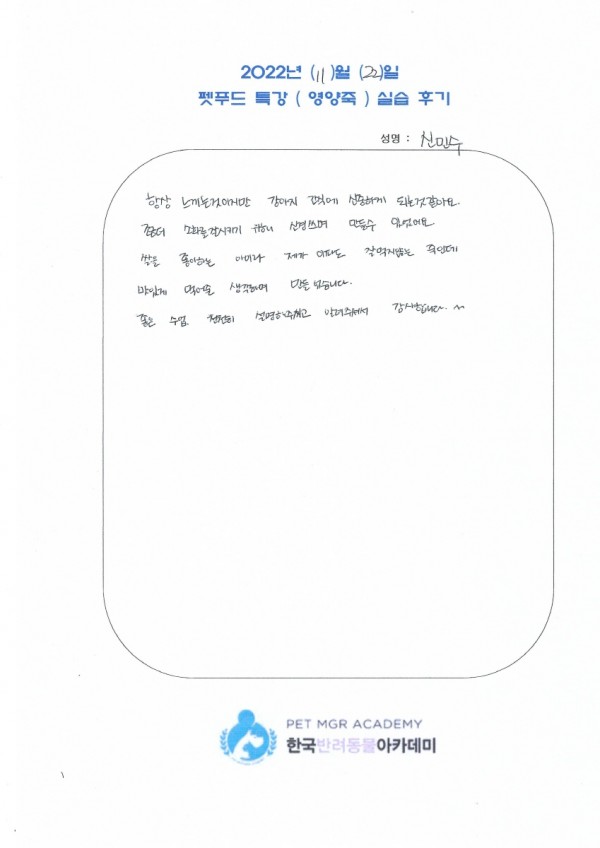 2022년 (11)월 (22)일
펫푸드 특강 ( 영양죽 ) 실습 후기
성명 : 신민수
항상 느끼는것이지만 강아지 간식에 신중하게 되는것같아요.
좀더 소화를 잘시키기 위해 신경쓰며 만들수 있었어요.
쌀을 좋아하는 아이라 제가 아파도 잘먹지않는 죽인데
맛있게 먹어줄 생각하며 만들었습니다.
좋은 수업 천천히 설명해주시고 알려주셔서 감사합니다. ~
PET MGR ACADEMY
한국반려동물아카데미